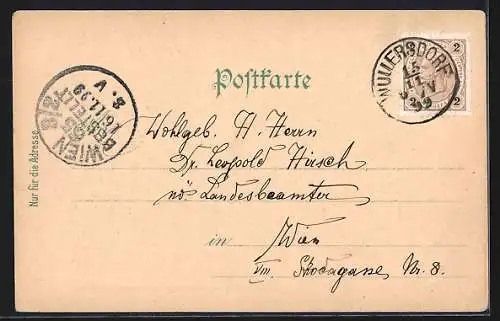 Postkarte
WULLERSDORF
15
11
99
2 2
2 2
WIEN
BESTELLT
16.11.99
8. V
Nur für die Adresse.
Wohlgeb. H. Herrn
Dr. Leopold Hirsch
nö Landesbeamter
in Wien
VIII. Skodagasse, Nr. 8.